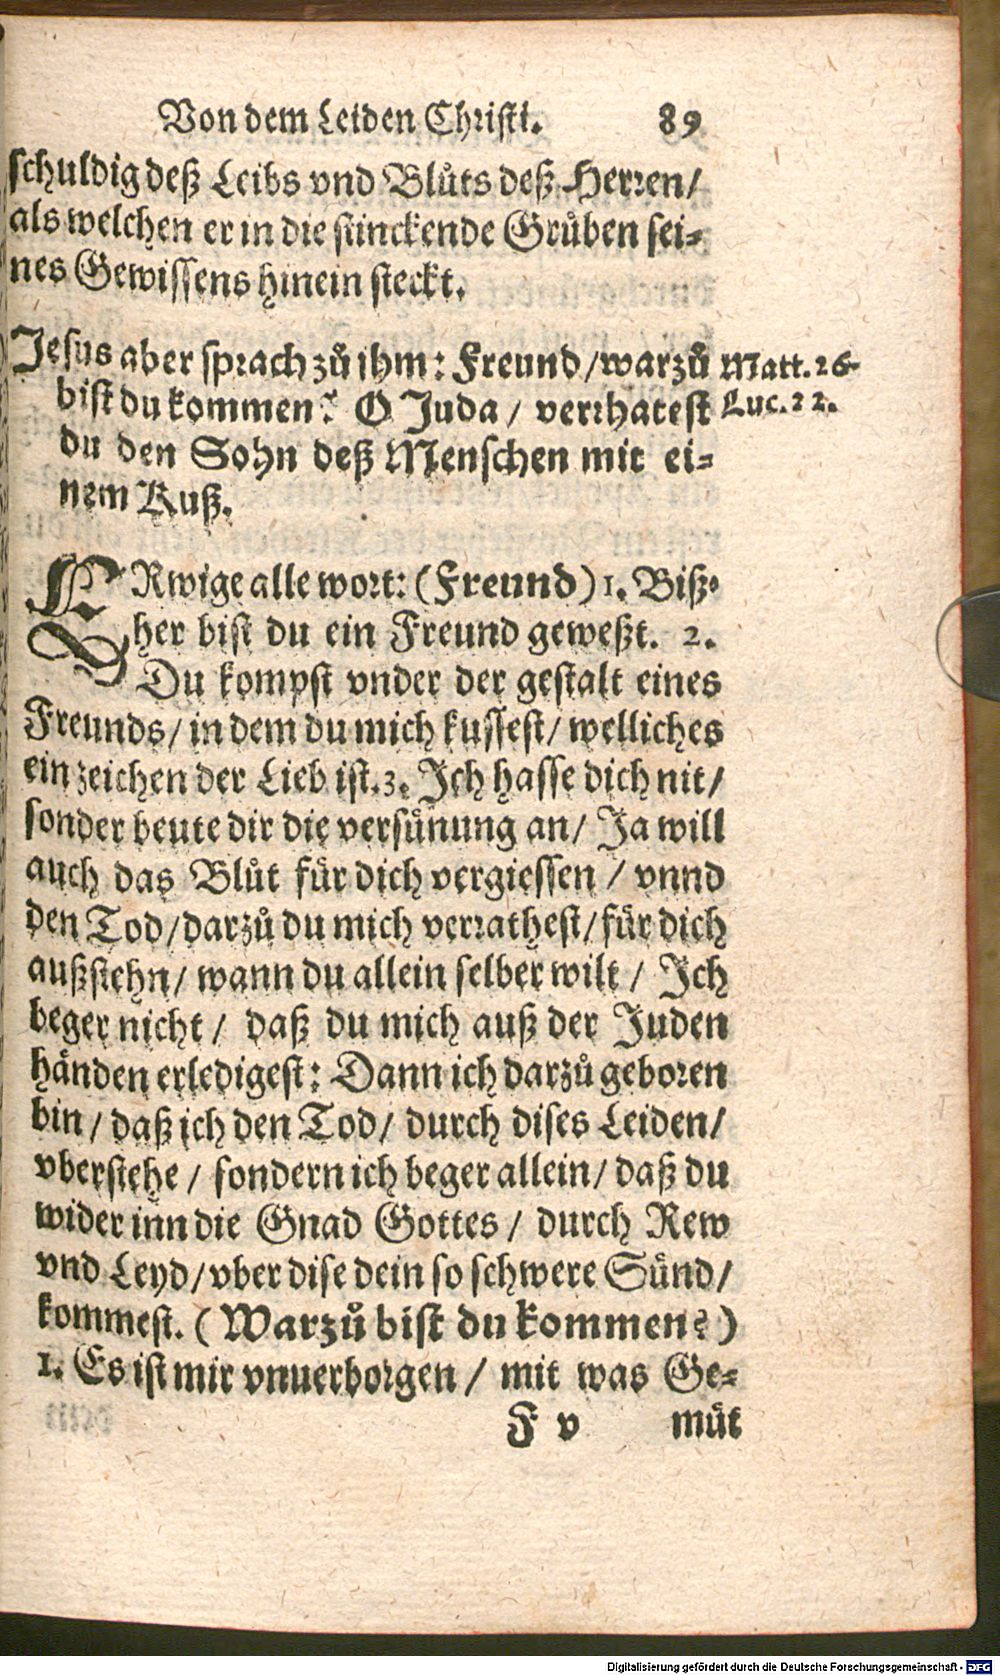 Von dem Leiden Christi. 89
schuldig deß Leibs vnd Blůts deß Herren/
als welchen er in die stinckende Grůben sei-
nes Gewissens hinein steckt.
Jesus aber sprach zů ihm: Freund/warzů Matt. 26.
bist du kommen? O Juda / verrhatest Luc. 22.
du den Sohn deß Menschen mit ei-
nem Kuß.
ERwige alle wort: (Freund) 1. Biß-
her bist du ein Freund geweßt. 2.
Du kompst vnder der gestalt eines
Freunds/ in dem du mich kussest/ welliches
ein zeichen der Lieb ist. 3. Ich hasse dich nit/
sonder beute dir die versünung an/ Ja will
auch das Blůt für dich vergiessen / vnnd
den Tod/darzů du mich verrathest/für dich
außstehn/ wann du allein selber wilt / Ich
beger nicht / daß du mich auß der Juden
händen erledigest: Dann ich darzů geboren
bin / daß ich den Tod/ durch dises Leiden/
vberstehe / sondern ich beger allein/ daß du
wider inn die Gnad Gottes / durch Rew
vnd Leyd/vber dise dein so schwere Sünd/
kommest. (Warzů bist du kommen?)
1. Es ist mir vnuerborgen / mit was Ge-
F v műt
Digitalisierung gefördert durch die Deutsche Forschungsgemeinschaft - DFG